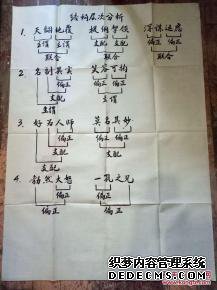 结构层次分析
1. 天翻地覆 提纲挈领 深谋远虑
主谓 主谓 支配 支配 偏正 偏正
联合 联合 联合
2. 名副其实 笑容可掬
偏正 偏正
支配 主谓
主谓
3. 好为人师 莫名其妙
偏正
支配 支配
4. 勃然大怒 一孔之见
偏正 偏正
偏正 偏正
织梦内容管理系统
DEDECMS.COM